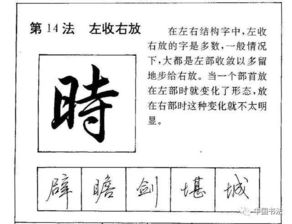 第14法 左收右放
時
在左右结构字中，左收
右放的字是多数，一般情况
下，大都是左部收敛以多留
地步给右放。当一个部首放
在左部时就变化了形态，放
在右部时这种变化就不太明
显。
辟 瞻 剑 堪 城
中国书法